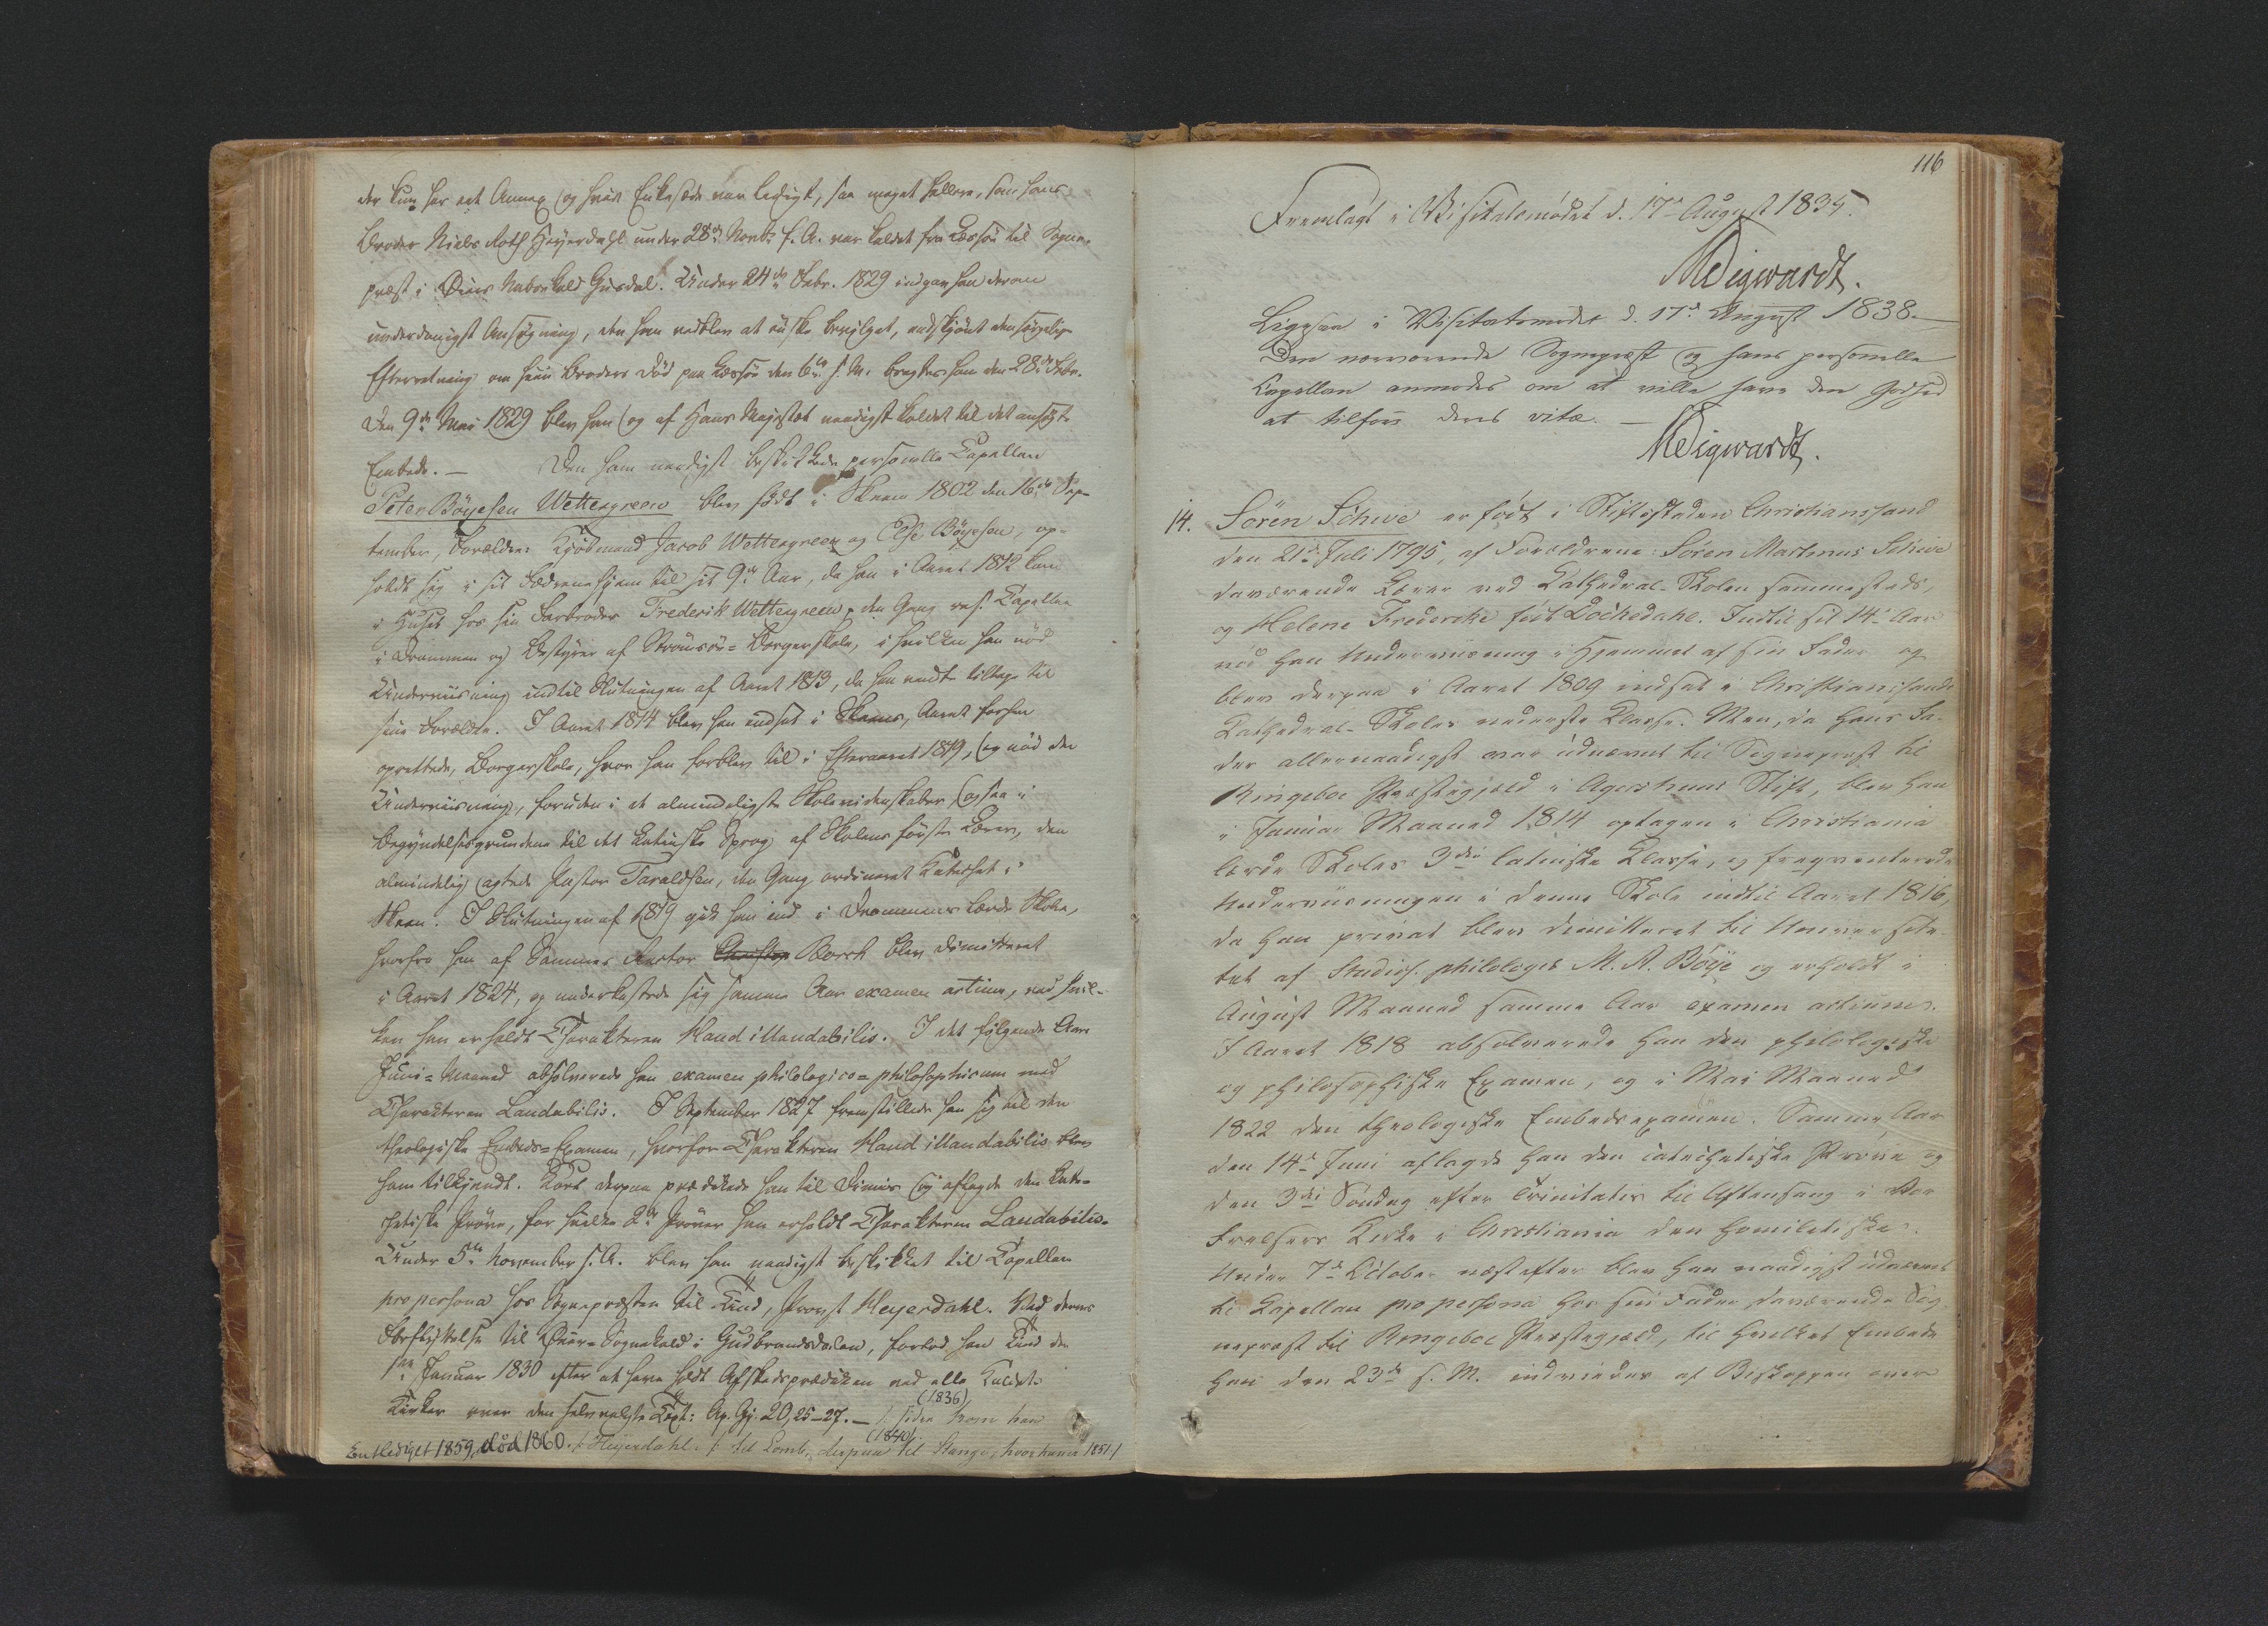 der kun har eet Annex og hvis Enkesæde var ledigt, saa meget hellere, som hans
Broder Niels Roth Heyerdahl under 28de Novbr. f. A. var kaldet fra Læssøe til Sogne-
præst i Øiers Nabokald Gusdal. Under 24de Febr. 1829 indgav han derom
underdanigst Ansøgning, den han vedblev at ønske bevilget, endskjøndt den sørgelige
Efterretning om hiin Broders Død paa Læssøe den 6te s. M. bragtes ham den 28de Febr.
Den 9de Mai 1829 blev han og af Hans Majestæt naadigst kaldet til det ansøgte
Embede. — Den ham naadigst beskikkede personelle Capellan
Peter Böyesen Wettergreen blev født i Skeen 1802 den 16de Sep-
tember, Forældre: Kjøbmand Jacob Wettergreen og Else Böyesen, op-
holdt sig i sit Fædrenehjem til sit 9de Aar, da han i Aaret 1812 kom
i Huset hos sin Farbroder Frederik Wettergreen, den Gang res. Capellan
i Drammen og Bestyrer af Strömsöe-Borgerskole, i hvilken han nöd
Underviisning indtil Slutningen af Aaret 1813, da han vendte tilbage til
sine Forældre. I Aaret 1814 blev han indsat i Skeens, Aaret forhen
oprettede, Borgerskole, hvor han forblev til i Efteraaret 1819, og nöd der
Underviisning, foruden i de almindeligste Skolevidenskaber, ogsaa i
Begyndelsesgrundene til det latinske Sprog af Skolens første Lærer, den
almindelig agtede Pastor Taraldsen, den Gang ordineret Katechet i
Skeen. I Slutningen af 1819 gik han ind i Drammens lærde Skole,
hvorfra han af Sammes Rector Borch blev dimitteret
i Aaret 1824, og underkastede sig samme Aar examen artium, ved hvil-
ken han erholdt Charakteren Haud illaudabilis. I det følgende Aars
Juni-Maaned absolverede han examen philologico-philosophicum med
Charakteren Laudabilis. I September 1827 fremstillede han sig til den
theologiske Embeds-Examen, hvorfor Charakteren Haud illaudabilis blev
ham tilkjendt. Kort derpaa prædikede han til Dimis og aflagde den kate-
chetiske Prøve, for hvilke 2de Prøver han erholdt Charakteren Laudabilis.
Under 5te November s. A. blev han naadigst beskikket til Capellan
pro persona hos Sognepræsten til Lund, Provst Heyerdahl. Ved dennes
Forflyttelse til Øiers Sognekald i Gudbrandsdalen, forlod han Lund den
1ste Januar 1830 efter at have holdt Afskedsprædiken ved alle Kaldets
Kirker over den selvvalgte Text: Ap. Gj. 20, 25–27. — /: siden kom han
(1836)
Entlediget 1859, död 1860. /: Heyerdahl :/ til Lomb, derpaa til Stange, hvor han er 1851:/
(1840)
116
Fremlagt i Visitatsmødet d. 17de August 1835.
Sigwardt.
Ligesaa i Visitatsmødet d. 17de August 1838.
Den nærværende Sognepræst og hans personelle
Capellan anmodes om at ville have den Godhed
at tilføie deres vita. —
Sigwardt.
14. Sören Schive er født i Stiftsstaden Christianssand
den 21de Juli 1795, af Forældrene: Sören Martinus Schive
daværende Lærer ved Cathedral-Skolen sammesteds,
og Helene Fredercke født Dochedahl. Indtil sit 14de Aar
nød han Underviisning i Hjemmet af sin Fader og
blev derpaa i Aaret 1809 indsat i Christianssands
Cathedral-Skoles nederste Classe. Men, da hans Fa-
der allernaadigst var udnævnt til Sognepræst til
Ringeboe Præstegjeld i Agershuus Stift, blev han
i Januar Maaned 1814 optagen i Christiania
lærde Skoles 3die latinske Classe, og freqventerede
Underviisningen i denne Skole indtil Aaret 1816,
da han privat blev dimitteret til Universite-
tet af Studios. philologiæ M. A. Böye og erholdt i
August Maaned samme Aar examen artium.
I Aaret 1818 absolverede han den philologiske
og philosophiske Examen, og i Mai Maaned
1822 den theologiske Embedsexamen. Samme Aar
den 14de Juni aflagde han den catechetiske Prøve og
den 3die Søndag efter Trinitatis til Aftensang i Vor
Frelsers Kirke i Christiania den homiletiske.
Under 7de October næstefter blev han naadigst udnævnt
til Capellan pro persona hos sin Fader, daværende Sog-
nepræst til Ringeboe Præstegjeld, til hvilket Embede
han den 23de s. M. indviedes af Biskoppen over